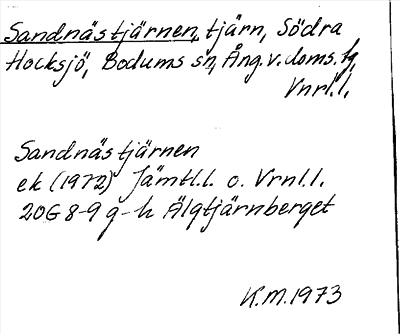 Sandnästjärnen, tjärn, Södra
Hocksjö, Bodums sn, Ång.v.doms.fg,
Vnrl.l.
Sandnästjärnen
ek (1972) Jämtl.l. o. Vrnl.l.
20G 8-9 g-h Älgtjärnberget
K.M.1973